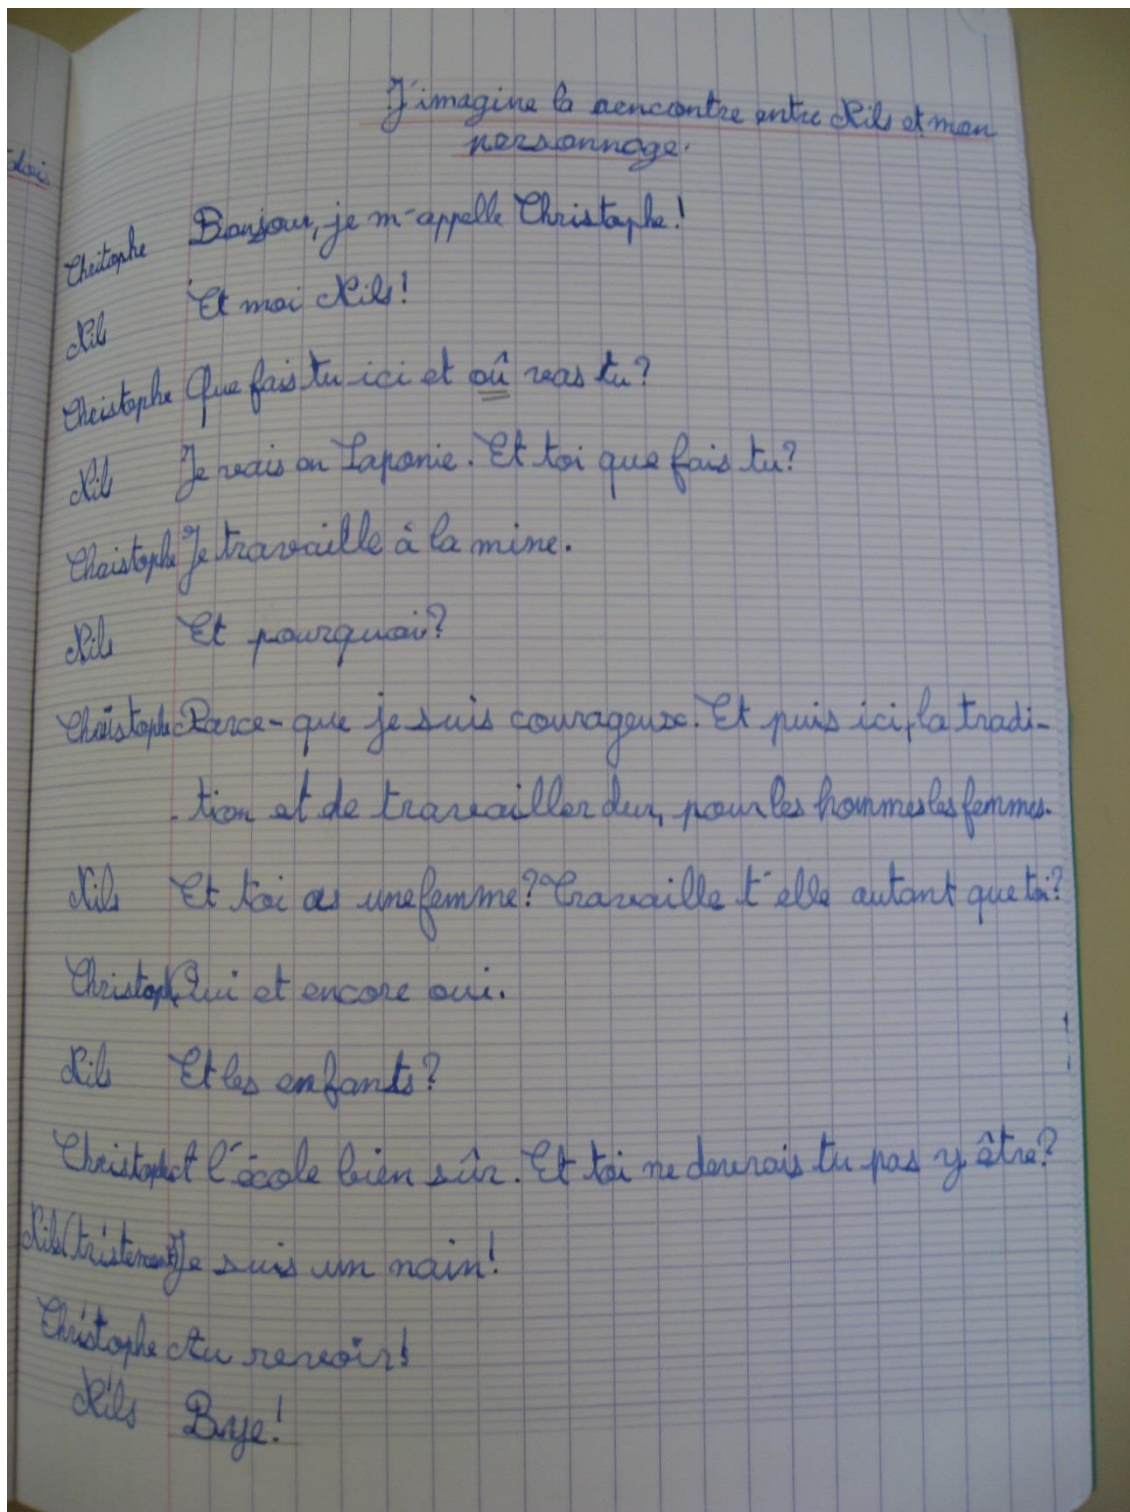 J'imagine la rencontre entre Nils et mon
personnage.
Chritophe Bonjour, je m'appelle Christophe!
Nils Et moi Nils!
Christophe Que fais tu ici et où vas tu?
Nils Je vais en Laponie. Et toi que fais tu?
Christophe Je travaille à la mine.
Nils Et pourquoi?
Christophe Parce-que je suis courageux. Et puis ici, la tradi-
tion et de travailler dur, pour les hommes les femmes.
Nils Et toi as une femme? Travaille t'elle autant que toi?
Christophe Oui et encore oui.
Nils Et les enfants?
Christophe A l'école bien sûr. Et toi ne devrais tu pas y être?
Nils (tristement) Je suis un nain!
Christophe Au revoir!
Nils Bye!